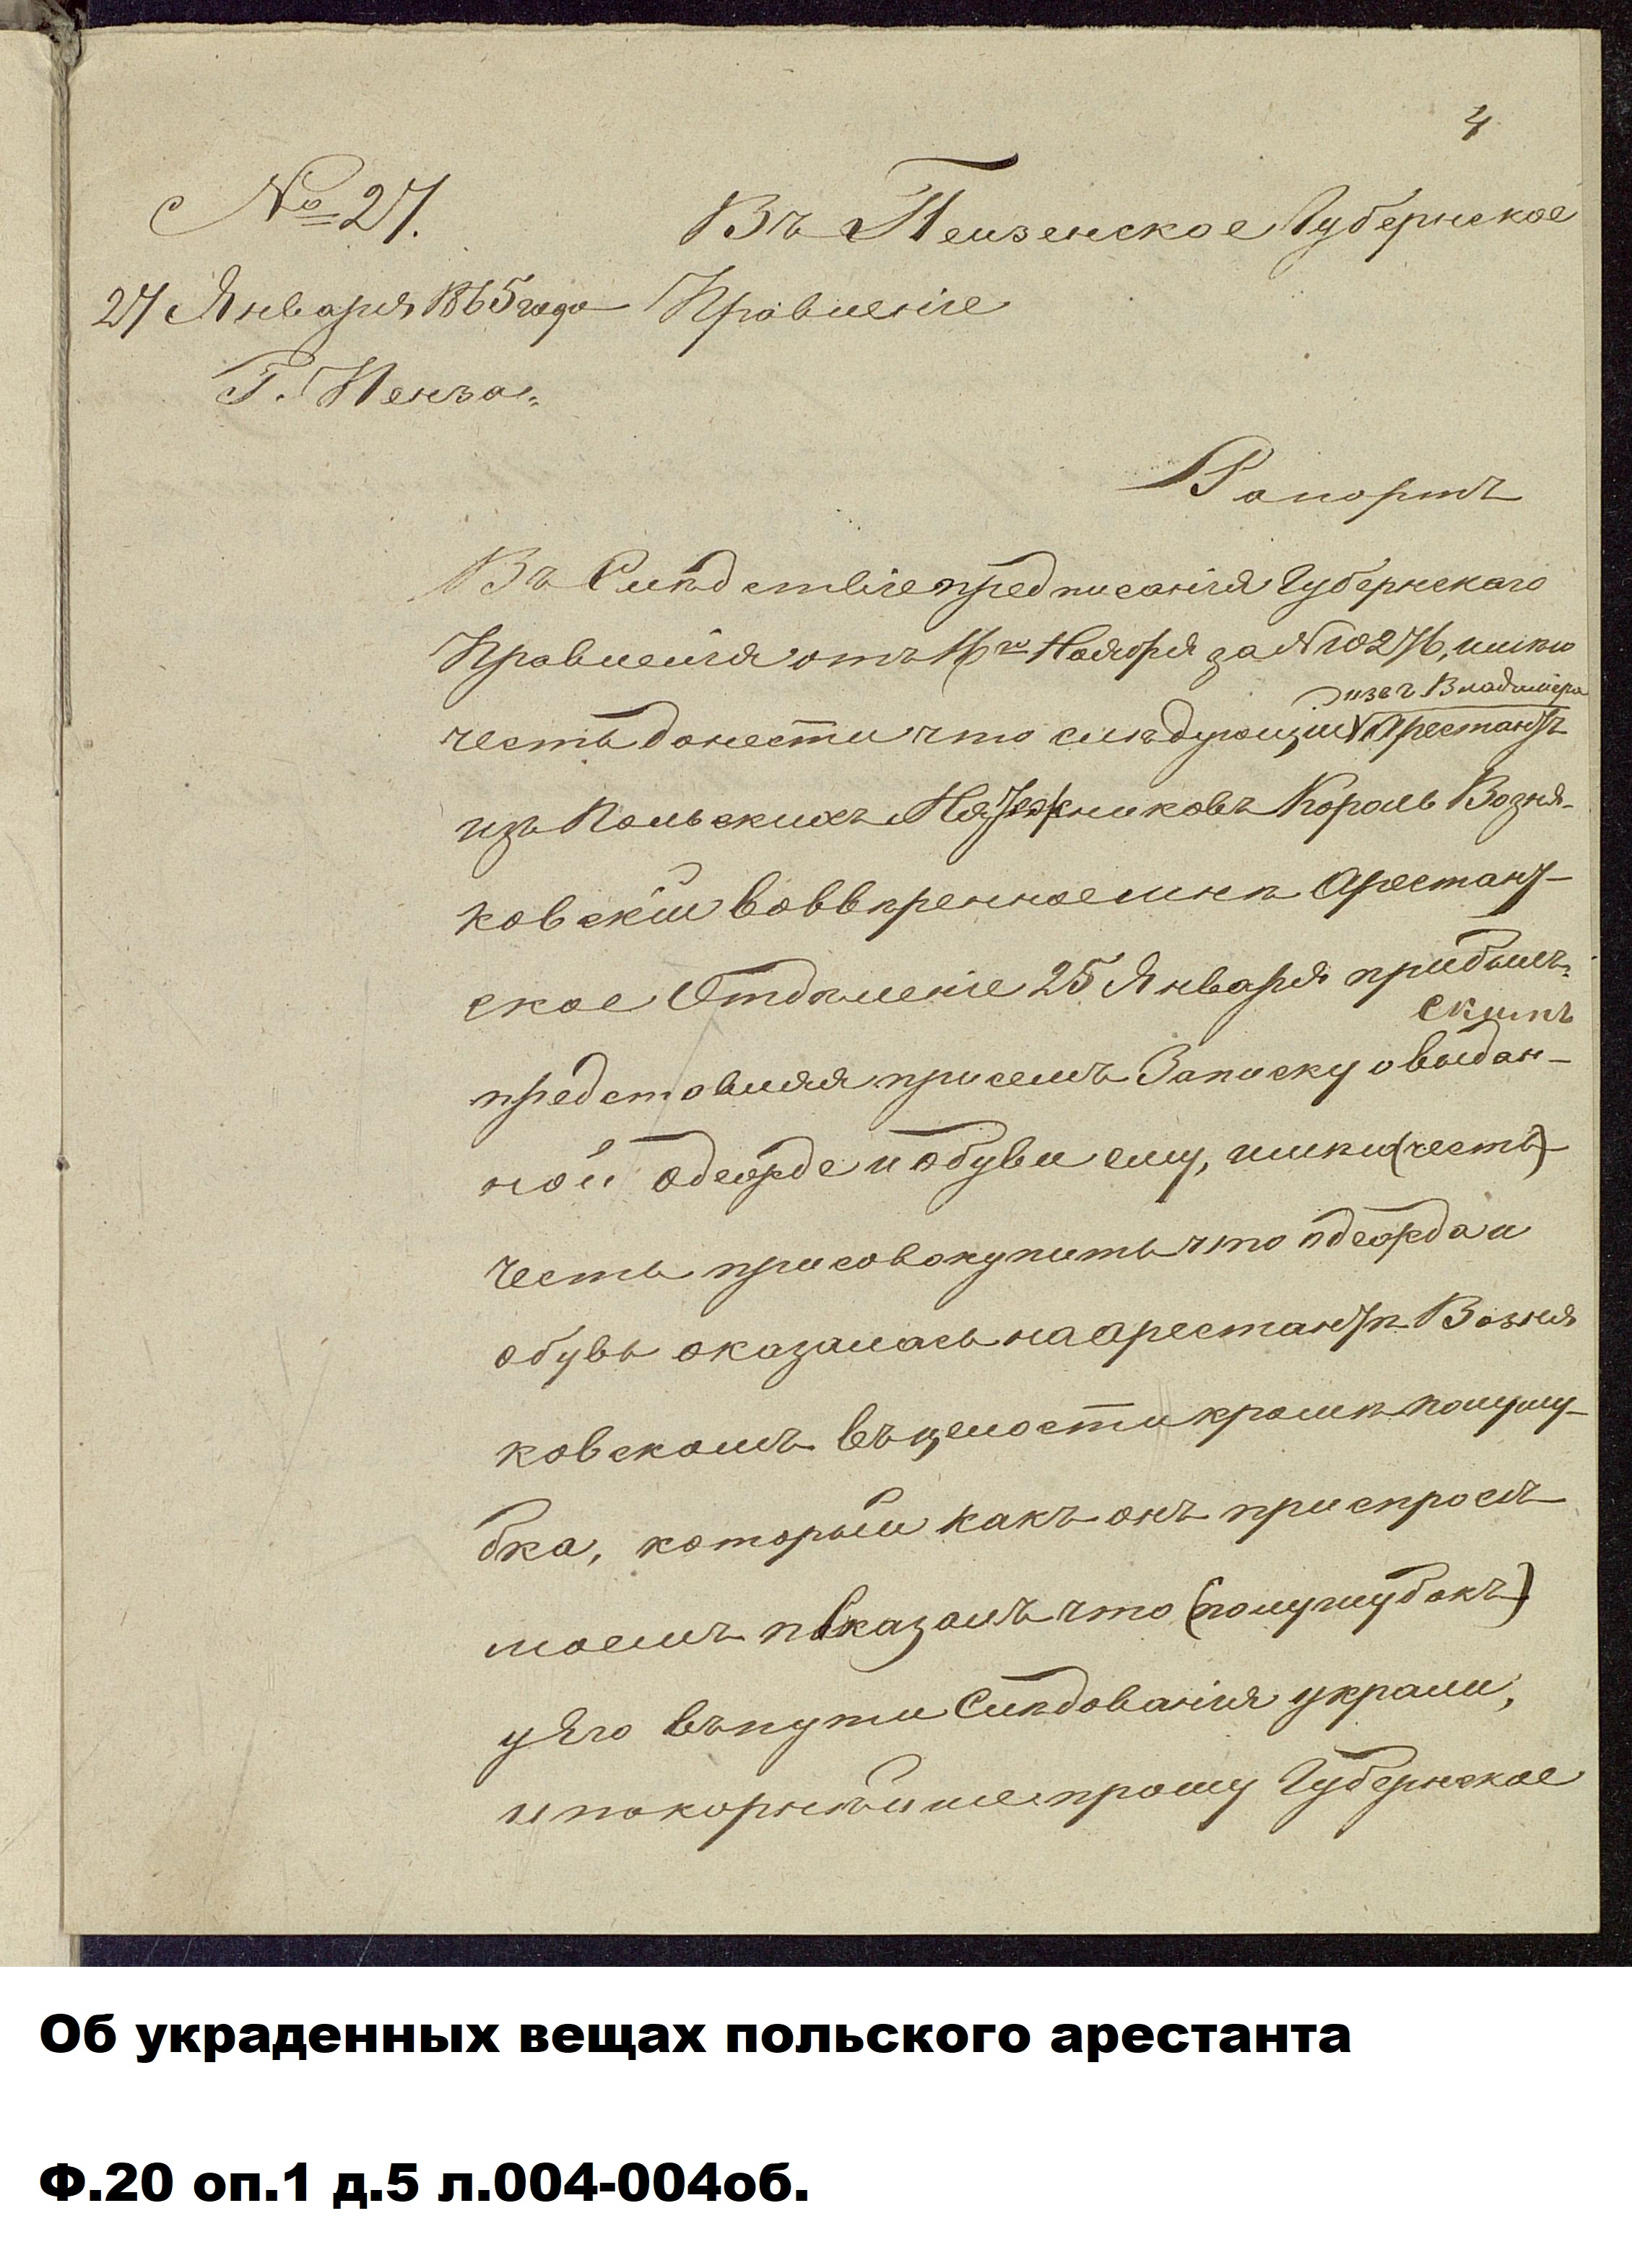 4
№ 27.
Въ Пензенское Губернское
27 Января 1865 года
Правленіе
Г. Пенза.
Рапортъ
Въ Слѣдствіе предписанія Губернскаго
Правленія отъ 16го Ноября за № 10276, имѣю
изъ г. Владиміра
честь донести что слѣдующій Арестантъ
изъ Польскихъ Мятежниковъ Король Возня-
ковскій во ввѣренное мнѣ Арестант-
ское Отдѣленіе 25 Января прибылъ.
Симъ
представляя при семъ Записку о выдан-
ной одеждѣ и обуви ему, имѣю (честь)
честь присовокупить что одежда и
обувь оказалась на арестантѣ Возня
ковскомъ въ целости кромѣ полушу-
бка, который какъ онъ при спросѣ
моемъ показалъ что (полушубокъ)
у Его въ пути Слѣдованія украли,
и покорнѣйше прошу Губернское
Об украденных вещах польского арестанта
Ф.20 оп.1 д.5 л.004-004об.